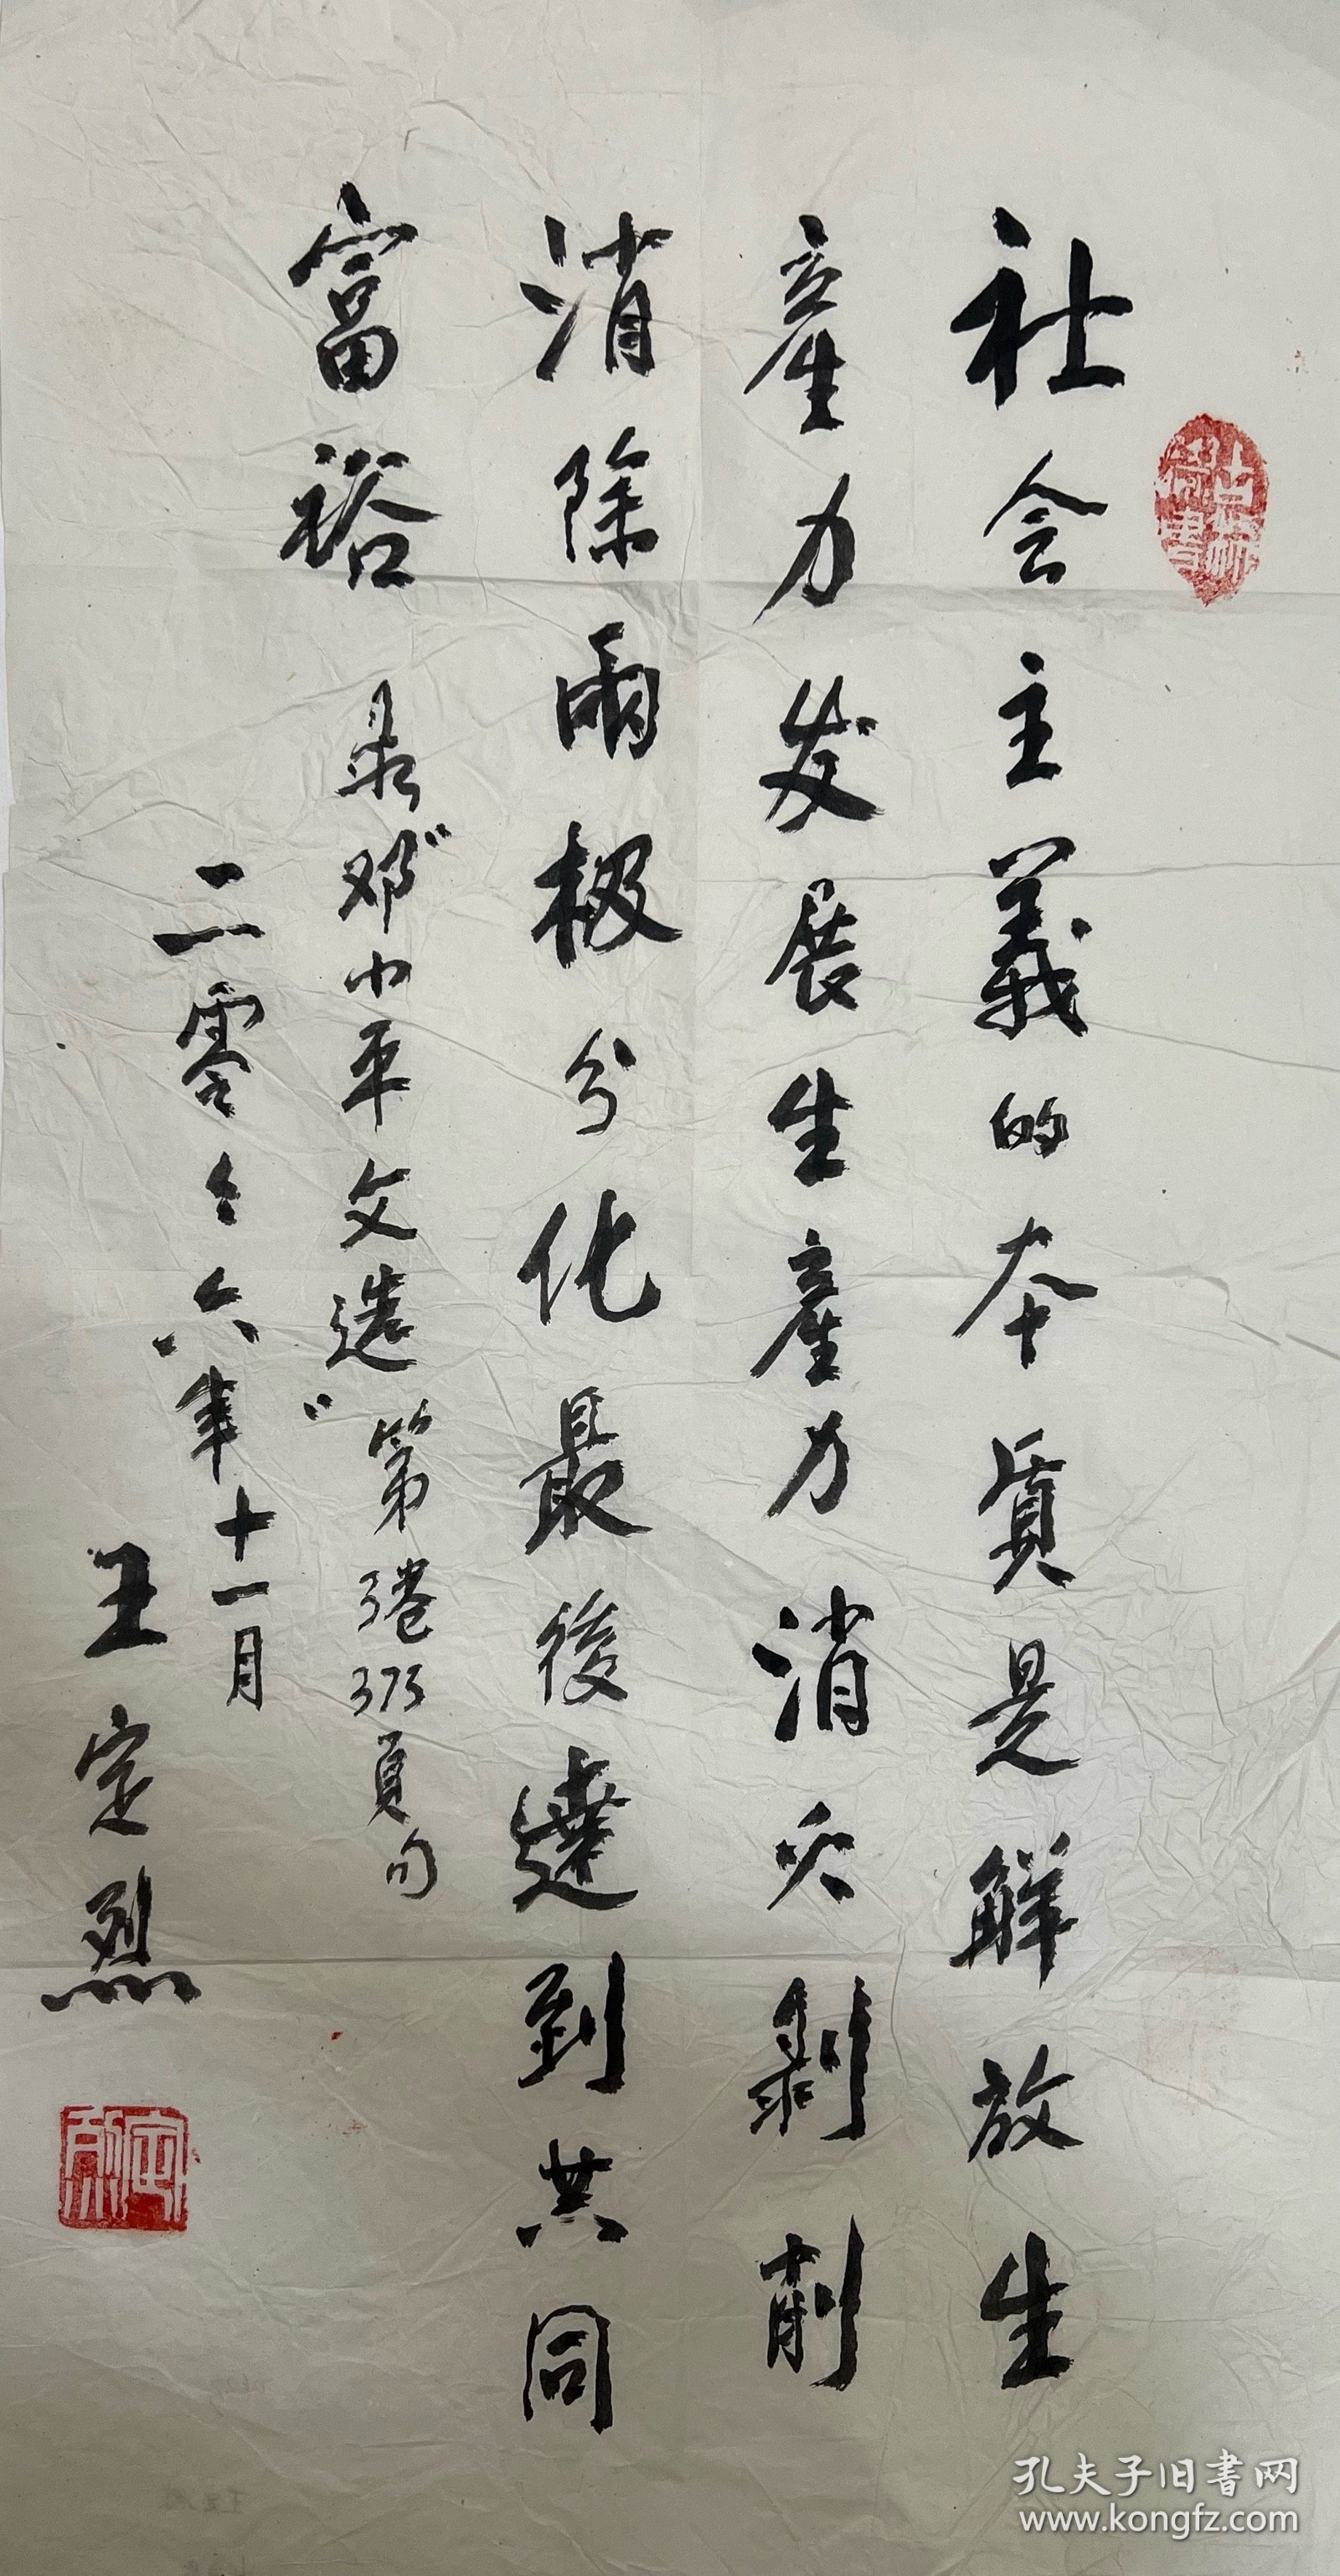 社会主義的本质是解放生
産力发展生産力消灭剝削
消除两极分化最後達到共同
富裕
录"邓小平文选"第3卷373頁句
二零零六年十一月
王定烈
孔夫子旧書网
www.kongfz.com